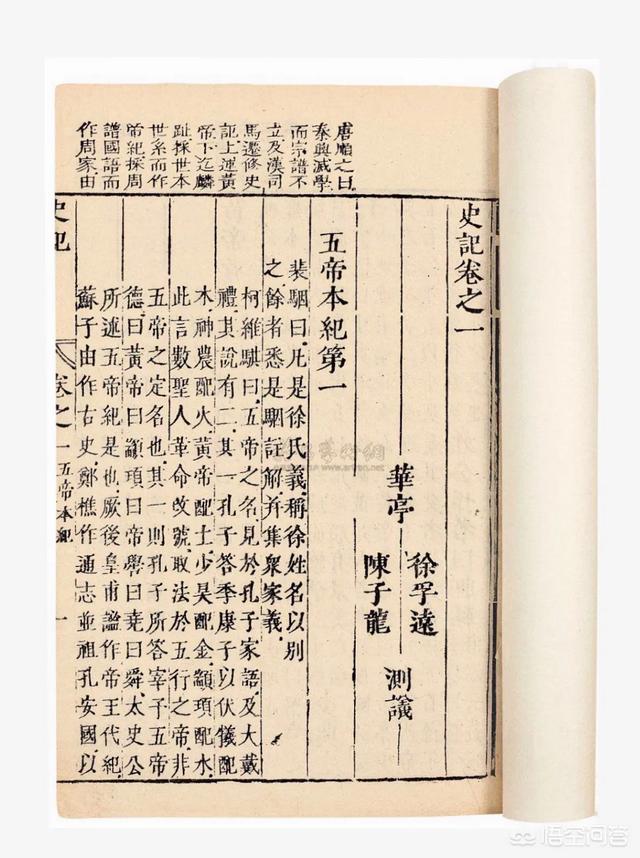 唐順之曰
秦興滅學
而宗譜不
立及漢司
馬遷修史
記上黃
帝下迄麟
趾採世本
世系而作
帝紀採周
譜國語而
作周家由
史記卷之一
華亭
徐孚遠
陳子龍
測議
五帝本紀第一
裴駰曰凡是徐氏義稱徐姓名以別
之餘者悉是駰註解并集衆家義
柯維騏曰五帝之名見於孔子家語及大戴
禮其說有二其一孔子答季康子以伏犧配
木神農配火黃帝配土少昊配金顓頊配水
此言數聖人革命改號取法於五行之帝非
五帝之定名也其一則孔子所答宰予五帝
德曰黃帝曰顓頊曰帝嚳曰堯曰舜太史公
所述五帝紀是也厥後皇甫謐作帝王代紀
蘇子由作古史鄭樵作通志並祖孔安國以
史記 卷之一 五帝本紀 一
悟空问答